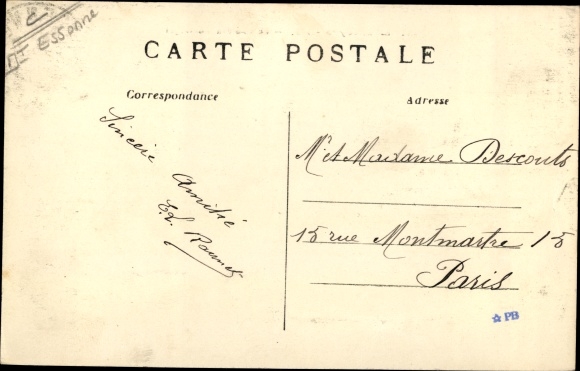 Essonne
CARTE POSTALE
Correspondance
Adresse
Sincère
Amitié
E. L.
Mr et Madame Descouts
15 rue Montmartre 15
Paris
☆ PB